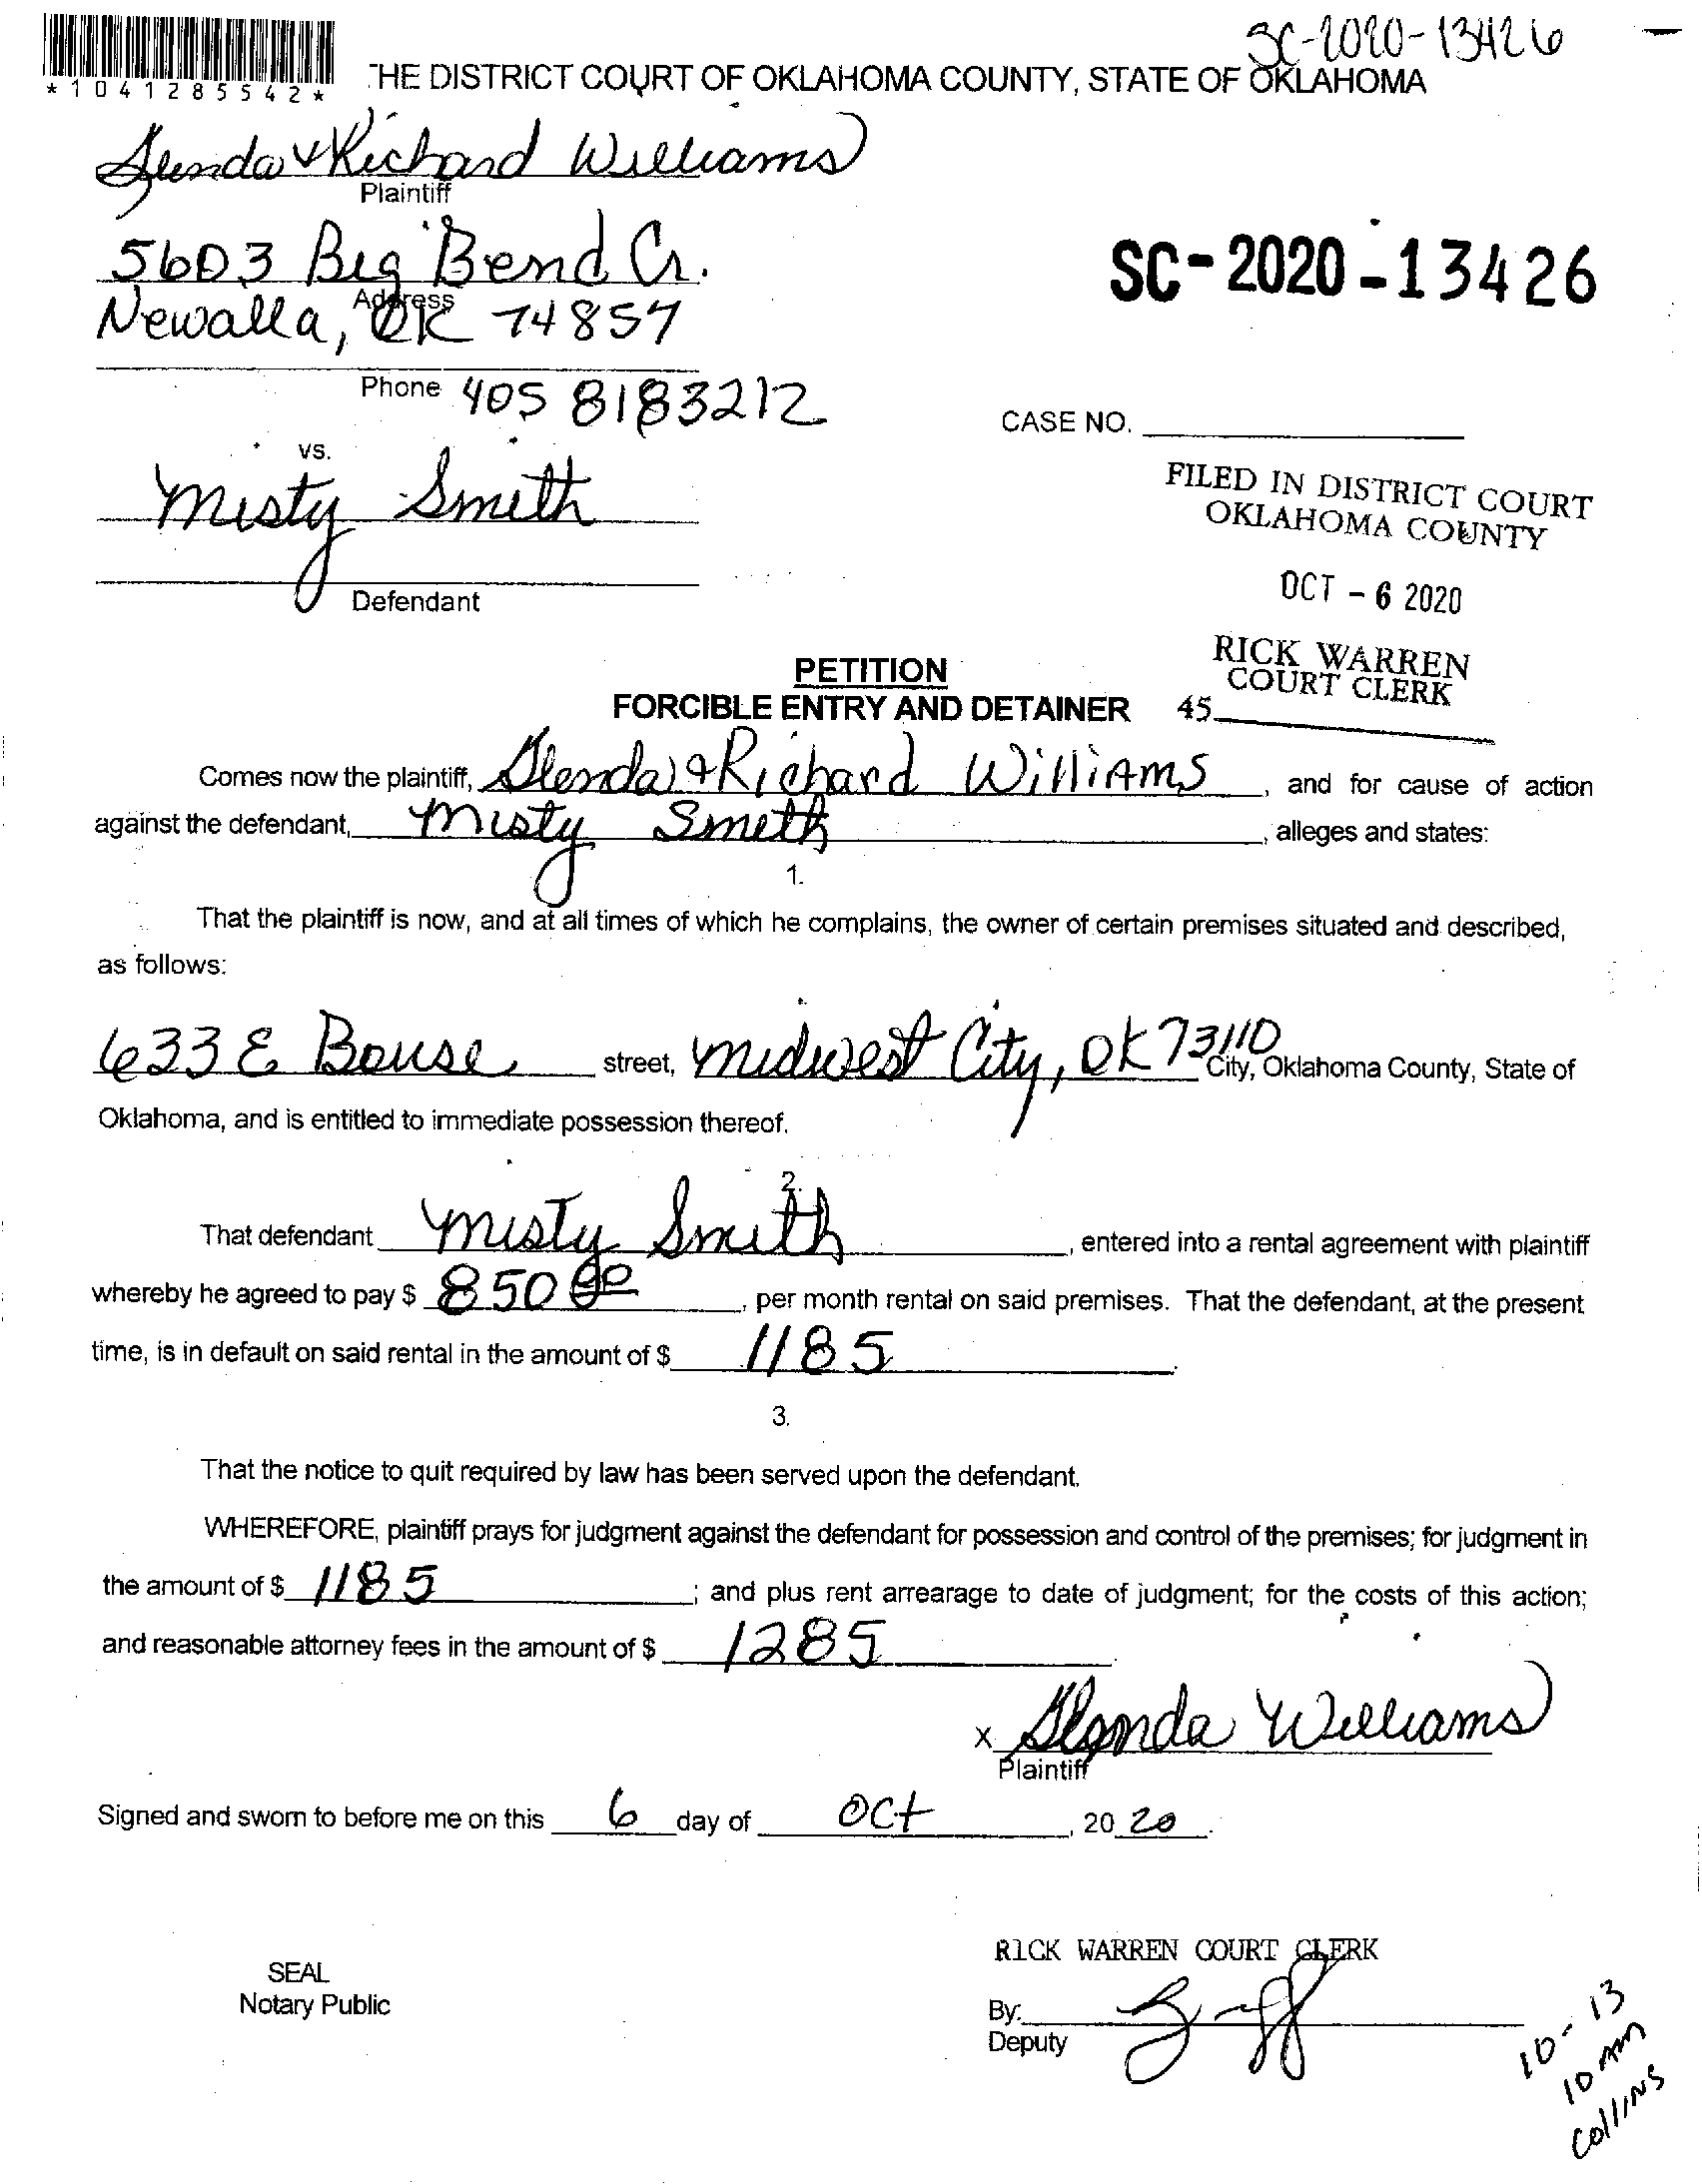 SC-2020-13426
*1041285542*
THE DISTRICT COURT OF OKLAHOMA COUNTY, STATE OF OKLAHOMA
Glenda & Richard Williams
Plaintiff
5603 Big Bend Cr.
Address
Newalla, OK 74857
SC-2020-13426
Phone 405 8183212
CASE NO.
vs.
Misty Smith
FILED IN DISTRICT COURT
OKLAHOMA COUNTY
OCT - 6 2020
Defendant
RICK WARREN
COURT CLERK
45
PETITION
FORCIBLE ENTRY AND DETAINER
Comes now the plaintiff, Glenda & Richard Williams, and for cause of action
against the defendant, Misty Smith, alleges and states:
1.
That the plaintiff is now, and at all times of which he complains, the owner of certain premises situated and described,
as follows:
633 E Bouse street, Midwest City, OK 73110 City, Oklahoma County, State of
Oklahoma, and is entitled to immediate possession thereof.
2.
That defendant Misty Smith, entered into a rental agreement with plaintiff
whereby he agreed to pay $ 850 00, per month rental on said premises. That the defendant, at the present
time, is in default on said rental in the amount of $ 1185.
3.
That the notice to quit required by law has been served upon the defendant.
WHEREFORE, plaintiff prays for judgment against the defendant for possession and control of the premises; for judgment in
the amount of $ 1185; and plus rent arrearage to date of judgment; for the costs of this action;
and reasonable attorney fees in the amount of $ 1285.
X Glenda Williams
Plaintiff
Signed and sworn to before me on this 6 day of Oct, 20 20.
RICK WARREN COURT CLERK
SEAL
Notary Public
By:
Deputy
10-13
10 AM
Collins